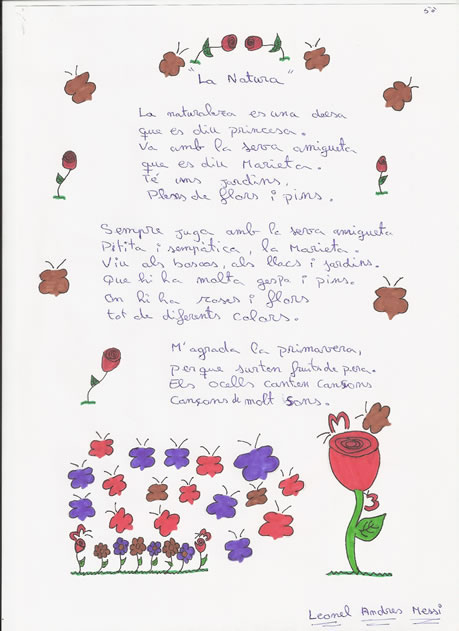 5è
"La Natura"
La naturaleza es una deesa
que es diu princesa.
Va amb la seva amigueta
que es diu Marieta.
Té uns jardins,
Plenes de flors i pins.
Sempre juga amb la seva amigueta
Petita i simpàtica, la Marieta.
Viu als boscos, als llacs i jardins.
Que hi ha molta gespa i pins.
On hi ha roses i flors
tot de diferents colors.
M'agrada la primavera,
perque surten fruita de pera.
Els ocells canten cançons
Cançons de molt sons.
Leonel Andres Messi